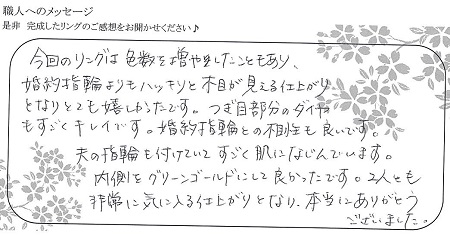 職人へのメッセージ
是非 完成したリングのご感想をお聞かせください♪
今回のリングは色数を増やしたこともあり、
婚約指輪よりもハッキリと木目が見える仕上がり
となりとても嬉しかったです。つぎ目部分のダイヤ
もすごくキレイです。婚約指輪との相性も良いです。
夫の指輪も付けていてすごく肌になじんでいます。
内側をグリーンゴールドにして良かったです。2人とも
非常に気に入る仕上がりとなり、本当にありがとう
ございました。